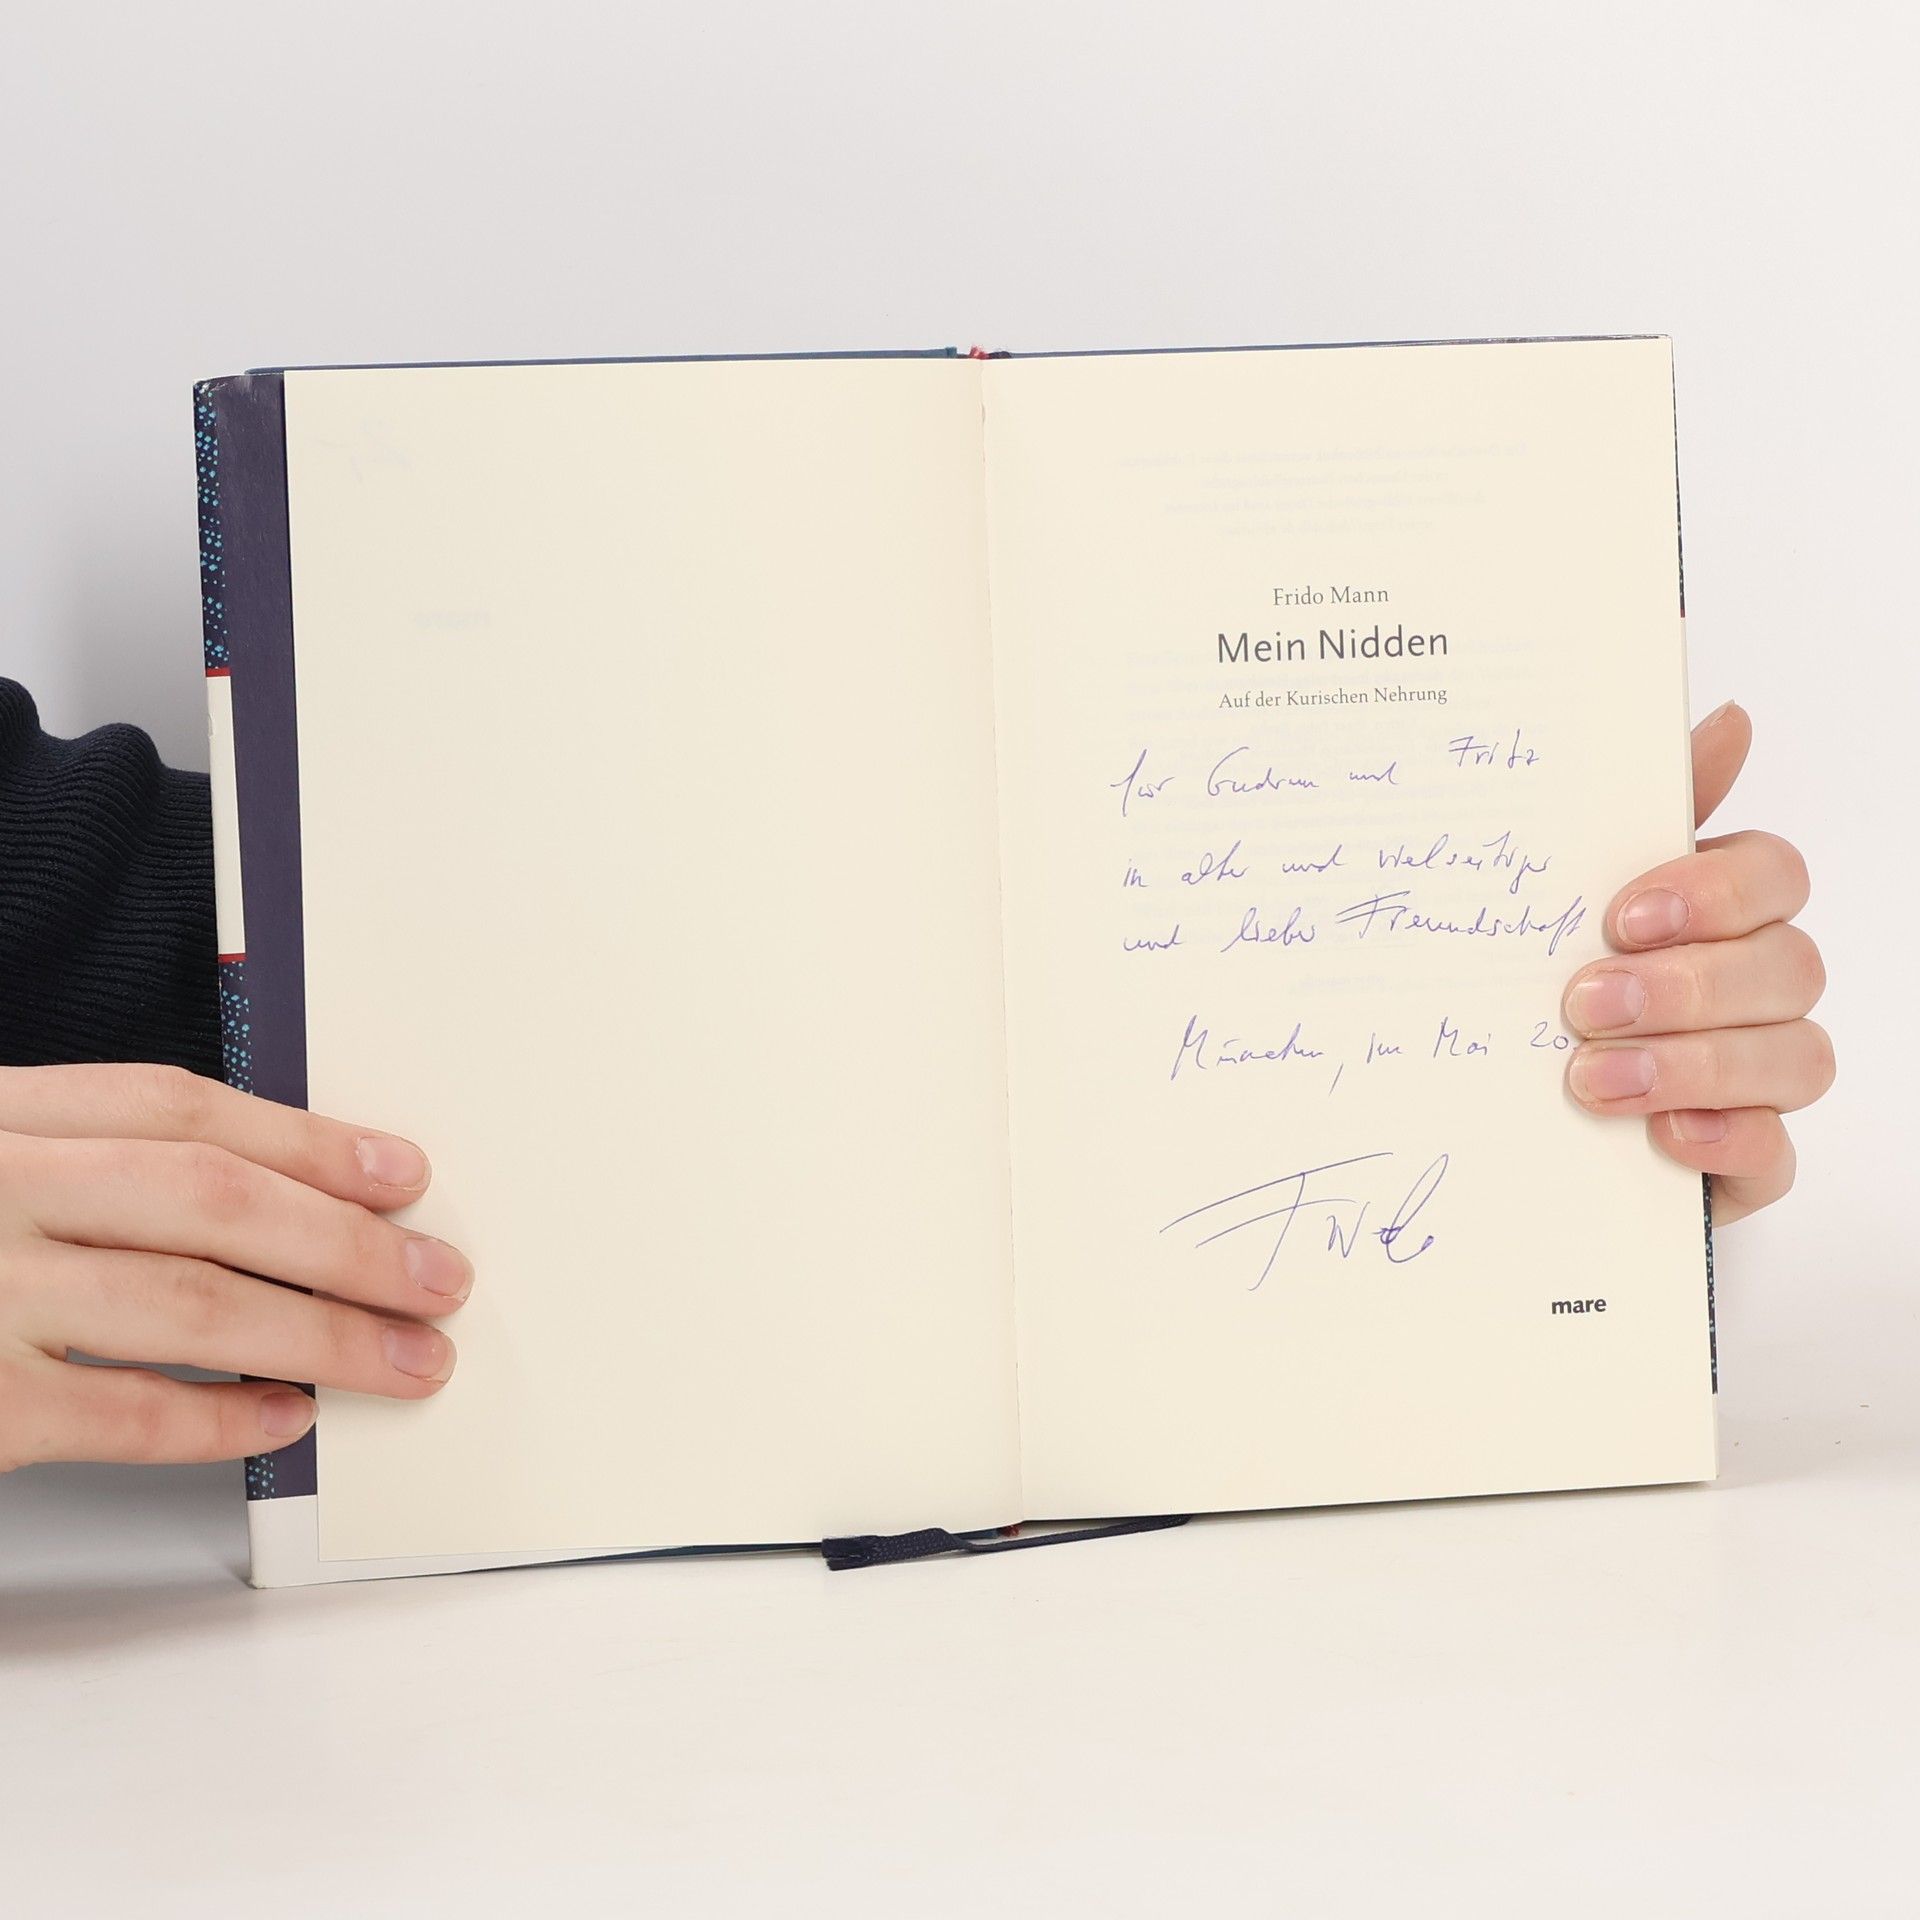 Frido Mann
Mein Nidden
Auf der Kurischen Nehrung
für Gudrun und Fritz
in alter und vielseitiger
und lieber Freundschaft
München, im Mai 20
Frido
mare